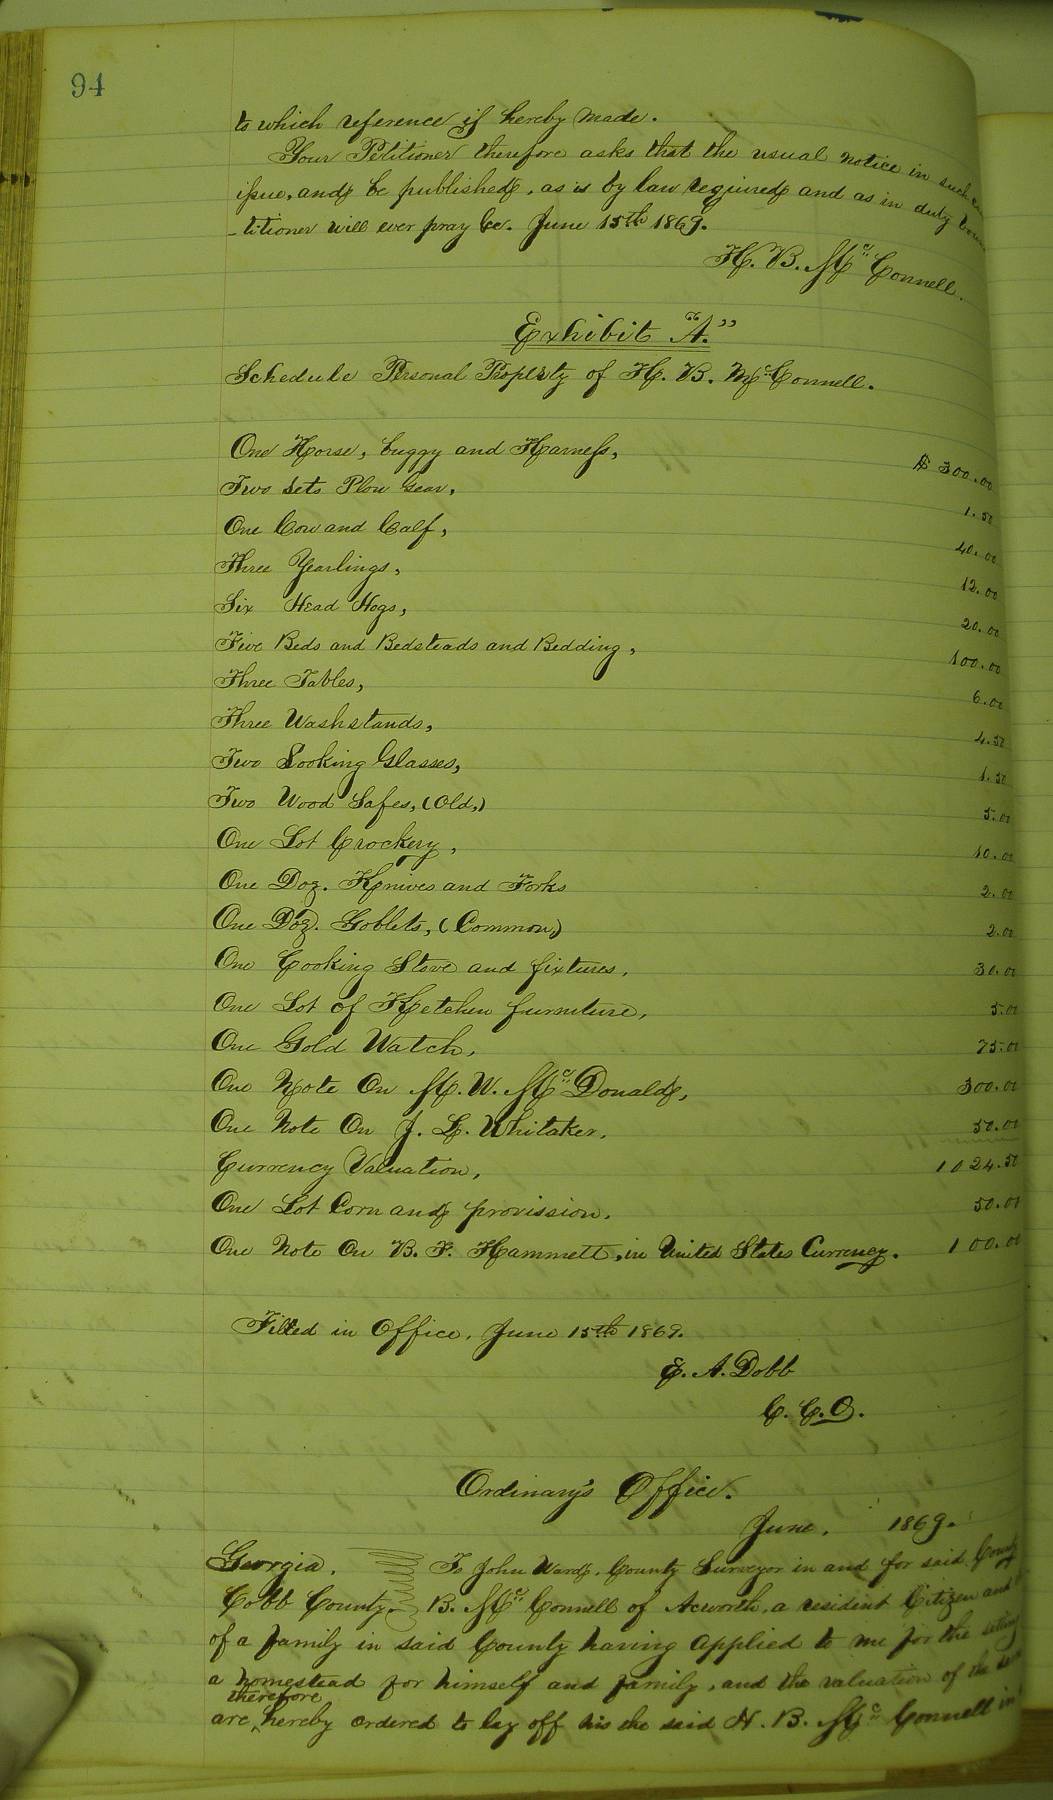 94
to which reference is hereby made.
Your Petitioner therefore asks that the usual notice in such
issue, and be published, as is by law required and as in duty
titioner will ever pray &c. June 15th 1869.
H. B. McConnell.
Exhibit "A."
Schedule Personal Property of H. B. McConnell.
One Horse, buggy and Harness, $300.00
Two Sets Plow Gear, 1.50
One Cow and Calf, 40.00
Three Yearlings, 12.00
Six Head Hogs, 20.00
Five Beds and Bedsteads and Bedding, 100.00
Three Tables, 6.00
Three Washstands, 4.50
Two Looking Glasses, 1.50
Two Wood Safes, (Old,) 5.00
One Lot Crockery, 10.00
One Doz. Knives and Forks 2.00
One Doz. Goblets, (Common,) 2.00
One Cooking Stove and fixtures, 30.00
One Lot of Ketchen furniture, 5.00
One Gold Watch, 75.00
One Note On M. W. McDonald, 300.00
One Note On J. L. Whitaker, 50.00
Currency Valuation, 1024.50
One Lot Corn and provission, 50.00
One Note On B. F. Hammett, in United States Currency. 100.00
Filled in Office, June 15th 1869.
E. A. Dobb
C. C. O.
Ordinary's Office.
June, 1869.
Georgia, To John Ward, County Surveyor in and for said County
Cobb County, B. McConnell of Acworth, a resident Citizen and
of a family in said County having applied to me for the setting
a homestead for himself and family, and the valuation of the
therefore
are hereby ordered to lay off his the said H. B. McConnell in